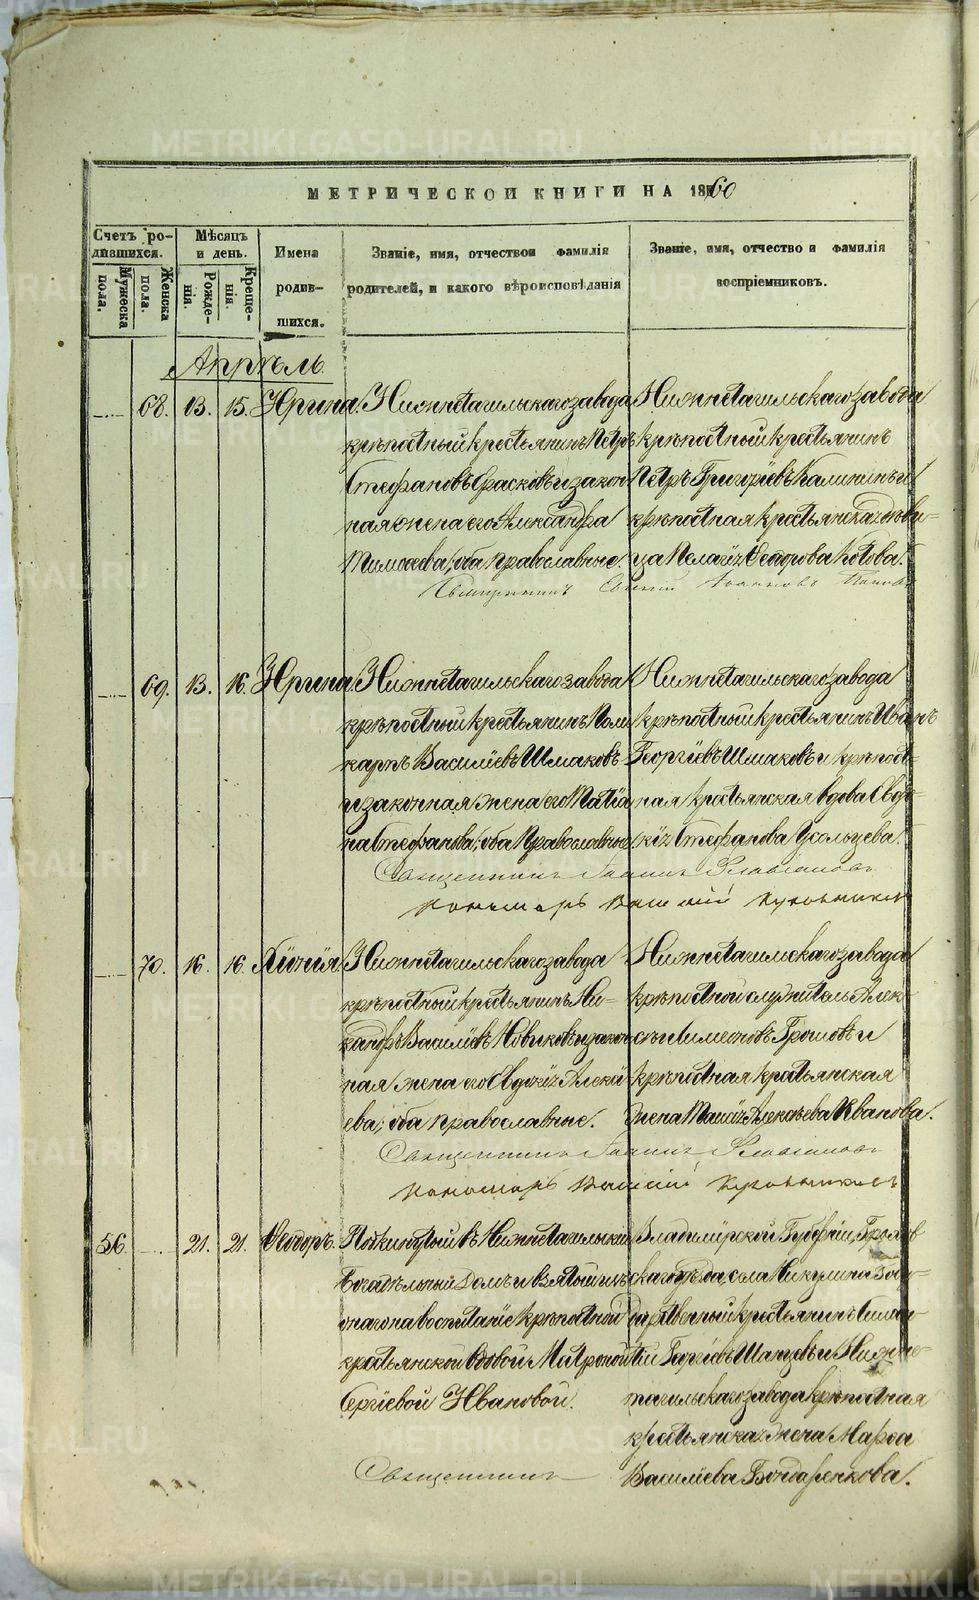 МЕТРИЧЕСКОИ КНИГИ НА 1860
Счетъ ро-
дившихся.
Мужеска
пола.
Женска
пола.
Мѣсяцъ
и день.
Рожде-
нія.
Креще-
нія.
Имена
родив-
шихся.
Званіе, имя, отчествои фамилія
родителей, и какого вѣроисповѣданія
Званіе, имя, отчество и фамилія
воспріемниковъ.
Апрѣль.
68. 13. 15. Ирина.
Нижнетагильскаго завода
крѣпостный крестьянинъ Петръ
Стефановъ и закон
ная жена его Александра
оба православные.
Нижнетагильскаго завода
крѣпостный крестьянинъ
Петръ Григоріевъ Калининъ и
крѣпостная крестьянская дѣви-
ца Пелагія Ѳеодорова Котова.
69. 13. 16. Ирина.
Нижнетагильскаго завода
крѣпостный крестьянинъ Поли
карпъ Василіевъ Шмаковъ
и законная жена его Татіа
на Стефанова, оба Православные.
Нижнетагильскаго завода
крѣпостный крестьянинъ Иванъ
Георгіевъ Шмаковъ и крѣпост-
ная крестьянская вдова Евдо-
кія Стефанова Усольцева.
Священникъ Іоаннъ Флавіановъ
Пономарь
70. 16. 16. Хіонія.
Нижнетагильскаго завода
крѣпостный крестьянинъ Ни-
кандръ Василіевъ Новиковъ и закон
ная жена его Евдокія Алексі
ева, оба православные.
Нижнетагильскаго завода
крѣпостной служитель Алек-
сѣй Симеоновъ и
крѣпостная крестьянская
жена Таисія Алексѣева Иванова.
Священникъ Іоаннъ Флавіановъ
Пономарь
56. 21. 21. Ѳеодоръ.
Подкинутый въ Нижнетагильскій
Богадѣльный Домъ и взятый изъ
онаго на воспитаніе крѣпостной
крестьянской вдовой Матроной
Сергіевой Ивановой.
Владимірской Губерніи Горохов
скаго уѣзда, села Никулина Госу-
дарственный крестьянинъ
Георгіевъ и Нижне-
тагильскаго завода крѣпостная
крестьянская жена Марѳа
Василіева Бондаренкова.
Священникъ
METRIKI.GASO-URAL.RU